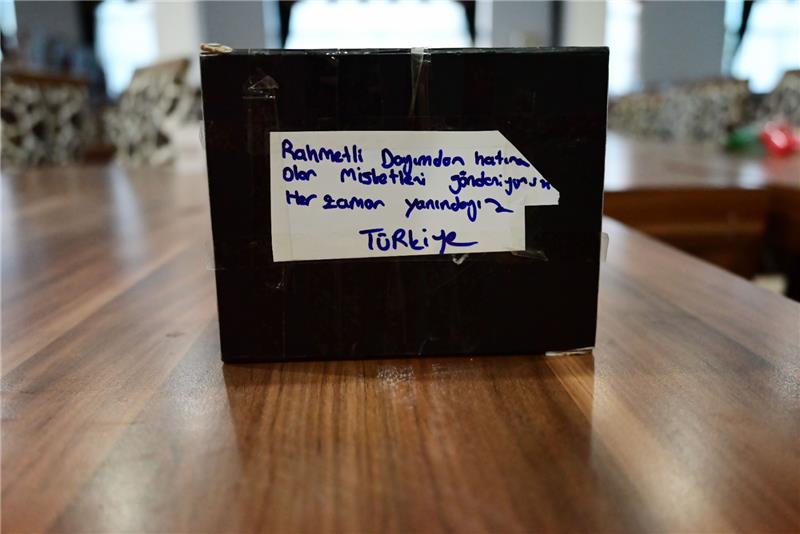 Rahmetli Dayımdan hatıra
olan Misketleri gönderiyorum
Her zaman yanındayız
TÜRkiye